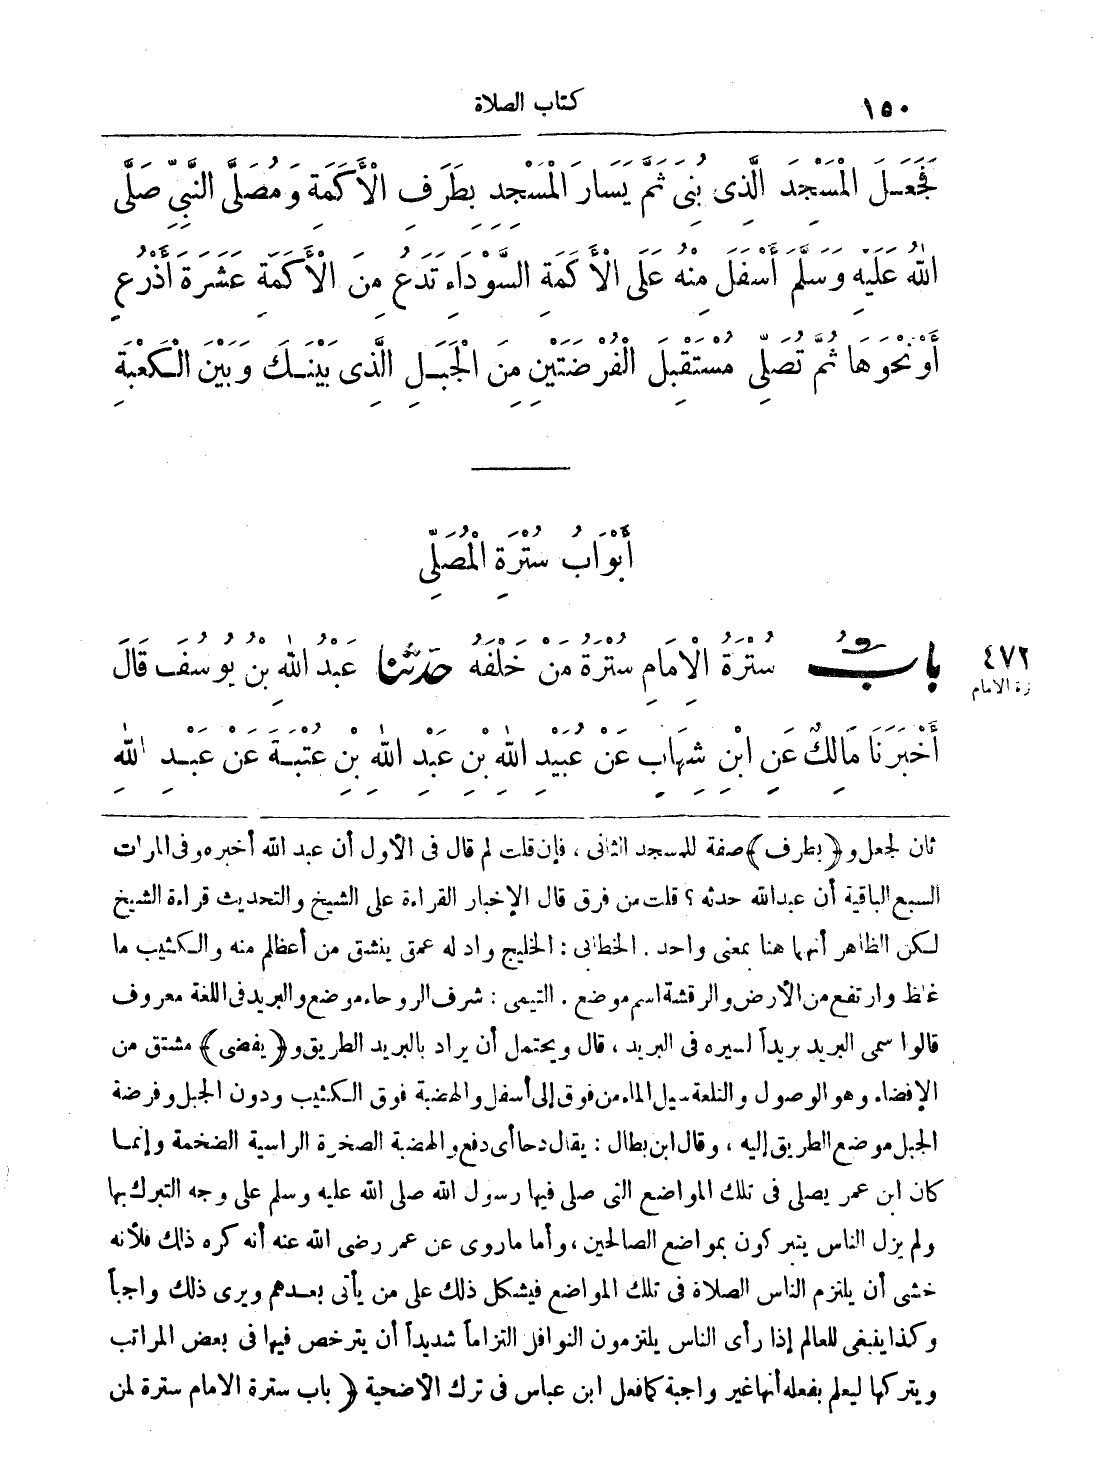 ١٥٠
كتاب الصلاة
فَجَعَلَ الْمَسْجِدَ الَّذِى بُنِىَ ثَمَّ يَسَارَ الْمَسْجِدِ بِطَرَفِ الْأَكَمَةِ وَمُصَلَّى النَّبِيِّ صَلَّى
اللهُ عَلَيْهِ وَسَلَّمَ أَسْفَلَ مِنْهُ عَلَى الْأَكَمَةِ السَّوْدَاءِ تَدَعُ مِنَ الْأَكَمَةِ عَشَرَةَ أَذْرُعٍ
أَوْ نَحْوَهَا ثُمَّ تُصَلِّى مُسْتَقْبِلَ الْفُرْضَتَيْنِ مِنَ الْجَبَلِ الَّذِى بَيْنَكَ وَبَيْنَ الْكَعْبَةِ
أَبْوَابُ سُتْرَةِ الْمُصَلِّى
بابٌ سُتْرَةُ الْإِمَامِ سُتْرَةُ مَنْ خَلْفَهُ حدثنا عَبْدُ اللهِ بْنُ يُوسُفَ قَالَ
٤٧٢
رة الامام
أَخْبَرَنَا مَالِكٌ عَنِ ابْنِ شِهَابٍ عَنْ عُبَيْدِ اللهِ بْنِ عَبْدِ اللهِ بْنِ عُتْبَةَ عَنْ عَبْدِ اللهِ
ثان لجعل و (بطرف) صفة للمسجد الثانى ، فإن قلت لم قال فى الأول أن عبد الله أخبره وفى المرات
السبع الباقية أن عبدالله حدثه ؟ قلت من فرق قال الإخبار القراءة على الشيخ والتحديث قراءة الشيخ
لكن الظاهر أنهما هنا بمعنى واحد . الخطابى : الخليج واد له عمق ينشق من أعظم منه والكثيب ما
غلظ وارتفع من الأرض والرقشة اسم موضع . التيمى : شرف الروحاء موضع والبريد فى اللغة معروف
قالوا سمى البريد بريداً لسيره فى البريد ، قال ويحتمل أن يراد بالبريد الطريق و (يفضى) مشتق من
الإفضاء وهو الوصول والتلعة سيل الماء من فوق إلى أسفل والهضبة فوق الكثيب ودون الجبل وفرضة
الجبل موضع الطريق إليه ، وقال ابن بطال : يقال دحا أى دفع والهضبة الصخرة الراسية الضخمة وإنما
كان ابن عمر يصلى فى تلك المواضع التى صلى فيها رسول الله صلى الله عليه وسلم على وجه التبرك بها
ولم يزل الناس يتبركون بمواضع الصالحين ، وأما ما روى عن عمر رضى الله عنه أنه كره ذلك فلأنه
خشى أن يلتزم الناس الصلاة فى تلك المواضع فيشكل ذلك على من يأتى بعدهم ويرى ذلك واجباً
وكذا ينبغى للعالم إذا رأى الناس يلتزمون النوافل التزاماً شديداً أن يترخص فيها فى بعض المراتب
ويتركها ليعلم بفعله أنها غير واجبة كما فعل ابن عباس فى ترك الأضحية (باب سترة الامام سترة لمن